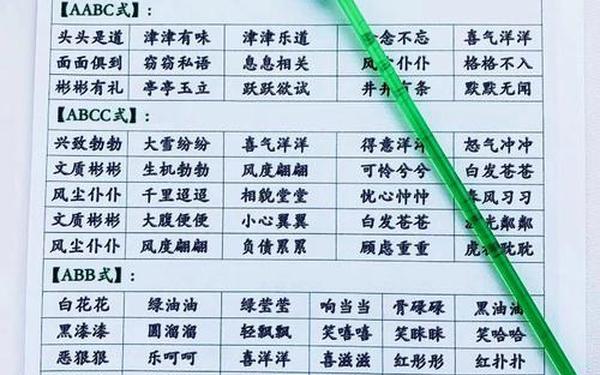 【AABC式】：
头头是道 津津有味 津津乐道 念不忘 喜气洋洋
面面俱到 窃窃私语 息息相关 风 仆仆 格格不入
彬彬有礼 亭亭玉立 跃跃欲试 井井有条 默默无闻
【ABCC式】：
兴致勃勃 大雪纷纷 喜气洋洋 得意洋洋 怒气冲冲
文质彬彬 生机勃勃 风度翩翩 可怜兮兮 白发苍苍
风尘仆仆 千里迢迢 相貌堂堂 忧心忡忡 风习习
文质彬彬 大腹便便 小心翼翼 白发苍苍 光粼粼
风尘仆仆 风度翩翩 负债累累 顾虑重重 虎视眈眈
【ABB式】：
白花花 绿油油 绿莹莹 响当当 骨碌碌 黑油油
黑漆漆 圆溜溜 轻飘飘 笑嘻嘻 笑眯眯 笑哈哈
恶狠狠 乐呵呵 喜洋洋 喜滋滋 红彤彤 红扑扑